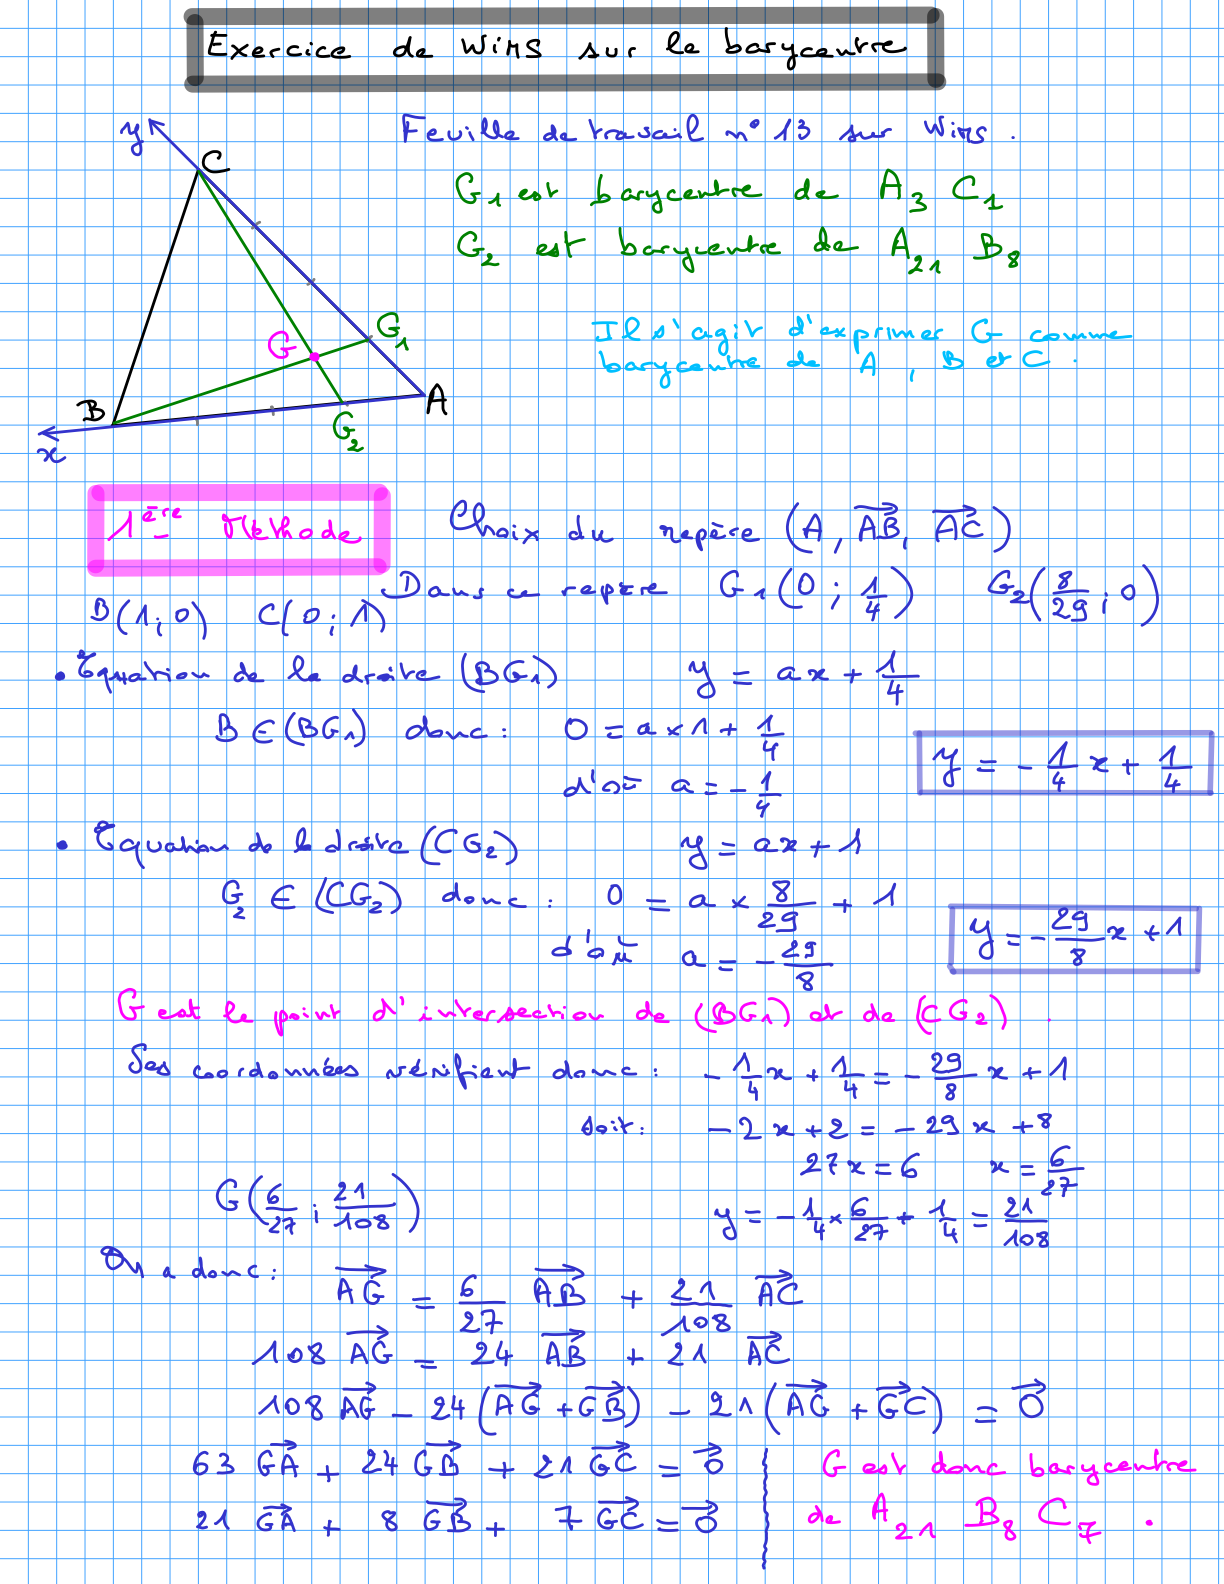 Exercice de WIMS sur le barycentre
Feuille de travail n° 13 sur Wims.
G₁ est barycentre de A₃ C₁
G₂ est barycentre de A₂₁ B₈
Il s'agit d'exprimer G comme
barycentre de A, B et C.
y
C
G
G₁
B
A
G₂
x
1ère Méthode
Choix du repère (A, AB⃗, AC⃗)
Dans ce repère G₁(0 ; 1/4) G₂(8/29 ; 0)
B(1;0) C(0;1)
• Equation de la droite (BG₁) y = ax + 1/4
B ∈ (BG₁) donc : 0 = a × 1 + 1/4
d'où a = - 1/4
y = - 1/4 x + 1/4
• Equation de la droite (CG₂) y = ax + 1
G₂ ∈ (CG₂) donc : 0 = a × 8/29 + 1
d'où a = - 29/8
y = - 29/8 x + 1
G est le point d'intersection de (BG₁) et de (CG₂).
Ses coordonnées vérifient donc : - 1/4 x + 1/4 = - 29/8 x + 1
soit : - 2x + 2 = - 29x + 8
27x = 6 x = 6/27
G(6/27 ; 21/108) y = - 1/4 × 6/27 + 1/4 = 21/108
On a donc : AG⃗ = 6/27 AB⃗ + 21/108 AC⃗
108 AG⃗ = 24 AB⃗ + 21 AC⃗
108 AG⃗ - 24(AG⃗ + GB⃗) - 21(AG⃗ + GC⃗) = 0⃗
63 GA⃗ + 24 GB⃗ + 21 GC⃗ = 0⃗
21 GA⃗ + 8 GB⃗ + 7 GC⃗ = 0⃗
G est donc barycentre
de A₂₁ B₈ C₇.